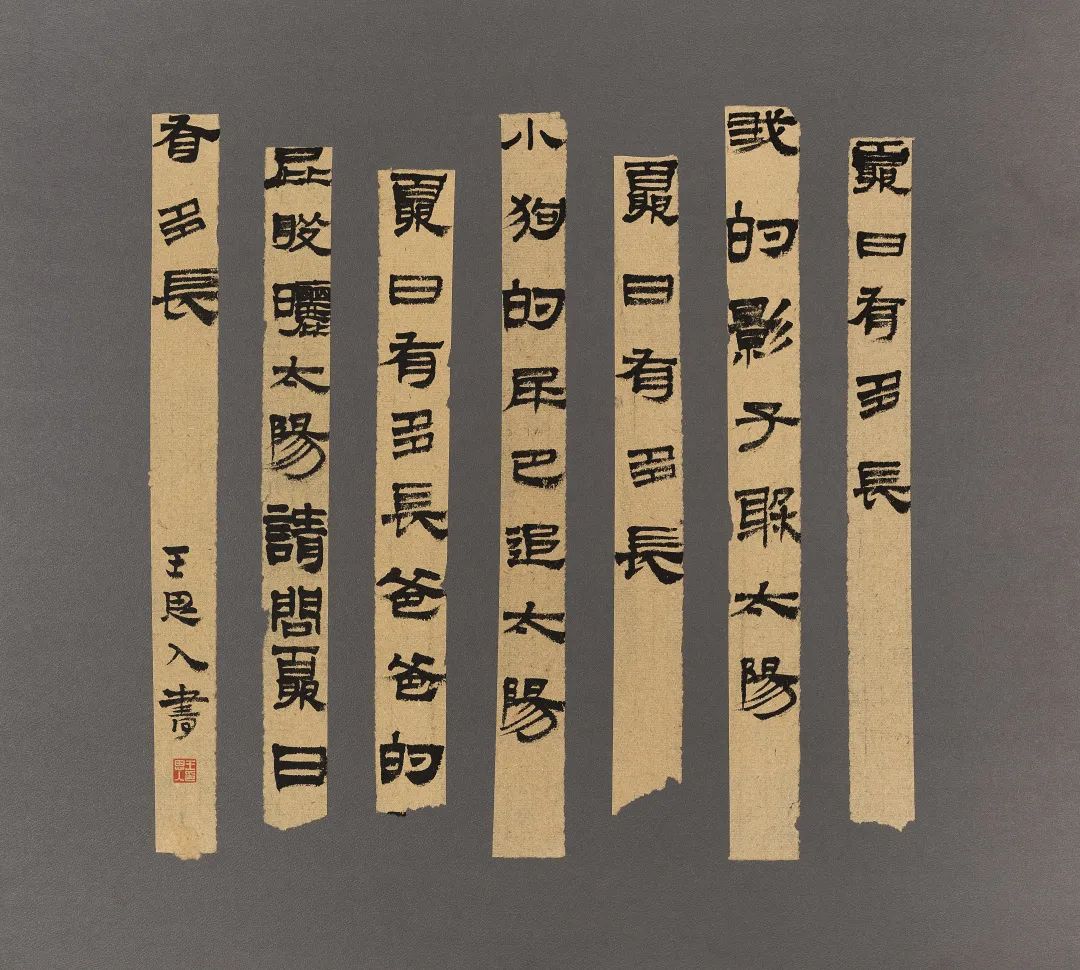 夏日有多長
我的影子躲太陽
夏日有多長
小狗的尾巴追太陽
夏日有多長爸爸的
屁股曬太陽請問夏日
有多長
王思入書